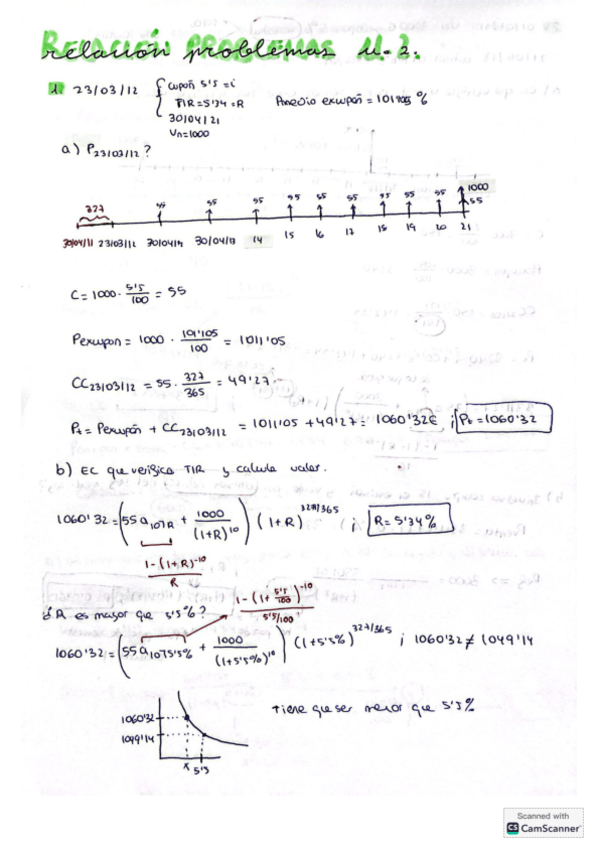 Relación problemas U.2.
1. 23/03/12 { Cupón 5'5 = i
TIR = 5'34 = R
30/04/21
Vn = 1000
Precio excupón = 101'105 %
a) P23/03/12 ?
327
55 55 55 55 55 55 55 55 55 1000
55
30/04/11 23/03/12 30/04/12 30/04/13 14 15 16 17 18 19 20 21
C = 1000 · 5'5/100 = 55
Pexcupón = 1000 · 101'105/100 = 1011'05
CC23/03/12 = 55 · 327/365 = 49'27
Pt = Pexcupón + CC23/03/12 = 1011'05 + 49'27 = 1060'32€ ; Pt = 1060'32
b) EC que verifica TIR y calcula valor.
1060'32 = (55 a10┐R + 1000/(1+R)^10) (1+R)^327/365 ; R = 5'34%
1-(1+R)^-10 / R
¿R es mayor que 5'5%?
1-(1+5'5/100)^-10 / 5'5/100
1060'32 = (55 a10┐5'5% + 1000/(1+5'5%)^10) (1+5'5%)^327/365 ; 1060'32 ≠ 1049'14
1060'32
1049'14
x 5'5
Tiene que ser menor que 5'5%
Scanned with
CS CamScanner